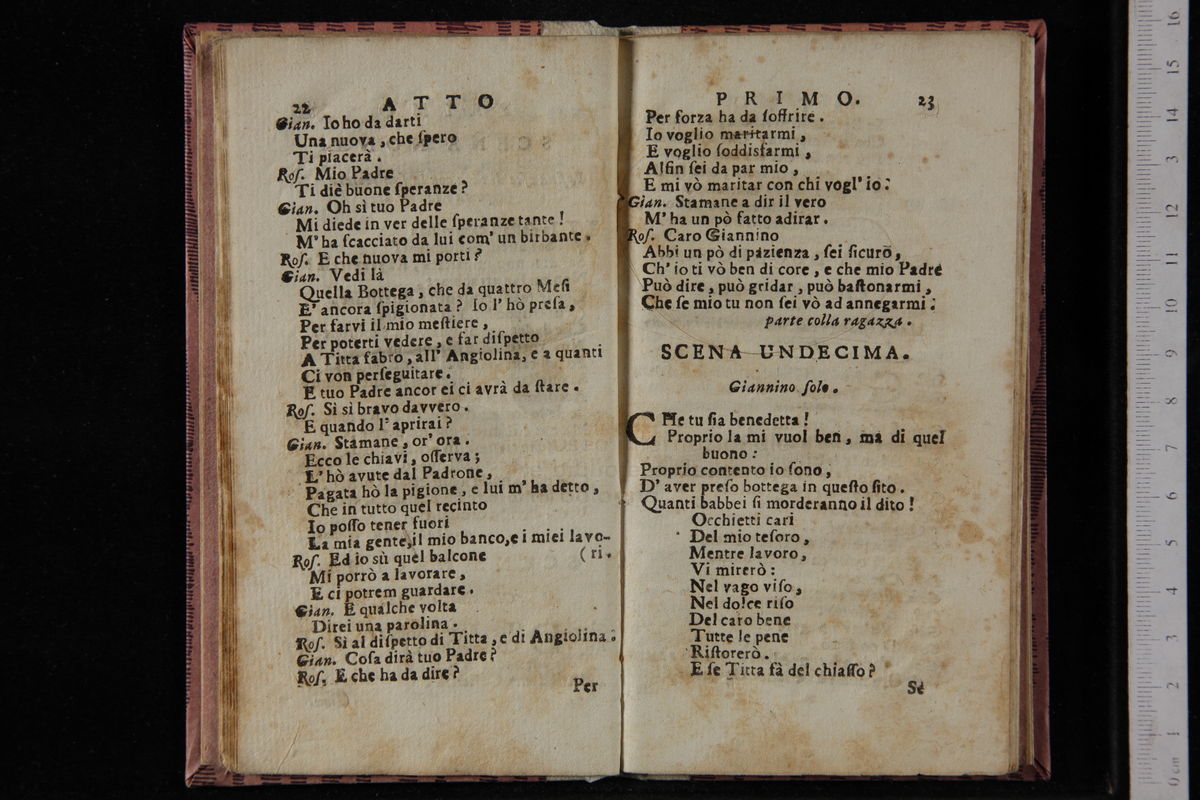 22 ATTO
Gian. Io ho da darti
Una nuova, che ſpero
Ti piacerà.
Roſ. Mio Padre
Ti diè buone ſperanze?
Gian. Oh sì tuo Padre
Mi diede in ver delle ſperanze tante!
M'ha ſcacciato da lui com' un birbante.
Roſ. E che nuova mi porti?
Gian. Vedi là
Quella Bottega, che da quattro Meſi
E' ancora ſpigionata? Io l' hò preſa,
Per farvi il mio meſtiere,
Per poterti vedere, e far diſpetto
A Titta fabro, all' Angiolina, e a quanti
Ci von perſeguitare.
E tuo Padre ancor ei ci avrà da ſtare.
Roſ. Sì sì bravo davvero.
E quando l' aprirai?
Gian. Stamane, or' ora.
Ecco le chiavi, oſſerva;
L' hò avute dal Padrone,
Pagata hò la pigione, e lui m' ha detto,
Che in tutto quel recinto
Io poſſo tener fuori
La mia gente, il mio banco, e i miei lavo-
Roſ. Ed io sù quel balcone (ri.
Mi porrò a lavorare,
E ci potrem guardare.
Gian. E qualche volta
Direi una parolina.
Roſ. Sì al diſpetto di Titta, e di Angiolina.
Gian. Coſa dirà tuo Padre?
Roſ. E che ha da dire?
Per
PRIMO. 23
Per forza ha da ſoffrire.
Io voglio maritarmi,
E voglio ſoddisfarmi,
Alfin ſei da par mio,
E mi vò maritar con chi vogl' io.
Gian. Stamane a dir il vero
M' ha un pò fatto adirar.
Roſ. Caro Giannino
Abbi un pò di pazienza, ſei ſicuro,
Ch' io ti vò ben di core, e che mio Padre
Può dire, può gridar, può baſtonarmi,
Che ſe mio tu non ſei vò ad annegarmi.
parte colla ragazza.
SCENA UNDECIMA.
Giannino ſolo.
CHe tu ſia benedetta!
Proprio la mi vuol ben, ma di quel
buono:
Proprio contento io ſono,
D' aver preſo bottega in queſto ſito.
Quanti babbei ſi morderanno il dito!
Occhietti cari
Del mio teſoro,
Mentre lavoro,
Vi mirerò:
Nel vago viſo,
Nel dolce riſo
Del caro bene
Tutte le pene
Riſtorerò.
E ſe Titta fà del chiaſſo?
Se
16
15
14
13
12
11
10
9
8
7
6
5
4
3
2
1
0 cm